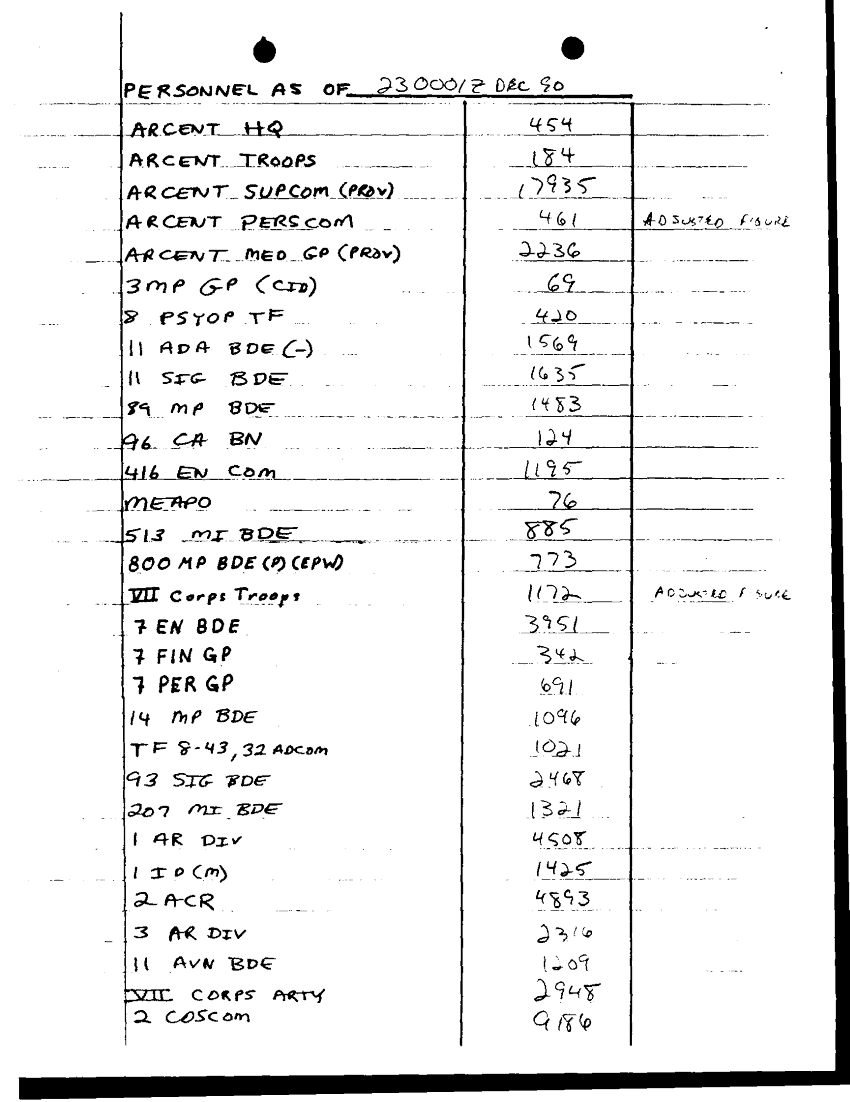 PERSONNEL AS OF 230001Z DEC 90
ARCENT HQ 454
ARCENT TROOPS 184
ARCENT SUPCOM (PROV) 17935
ARCENT PERSCOM 461 ADJUSTED FIGURE
ARCENT MED GP (PROV) 2236
3 MP GP (CID) 69
8 PSYOP TF 420
11 ADA BDE (-) 1569
11 SIG BDE 1635
89 MP BDE 1483
96 CA BN 124
416 EN COM 1195
MEAPO 76
513 MI BDE 885
800 MP BDE (P) (EPW) 773
VII Corps Troops 1172 ADJUSTED FIGURE
7 EN BDE 3951
7 FIN GP 342
7 PER GP 691
14 MP BDE 1096
TF 8-43, 32 ADCOM 1021
93 SIG BDE 2468
207 MI BDE 1321
1 AR DIV 4508
1 ID (M) 1425
2 ACR 4893
3 AR DIV 2316
11 AVN BDE 1209
VII CORPS ARTY 2948
2 COSCOM 9186